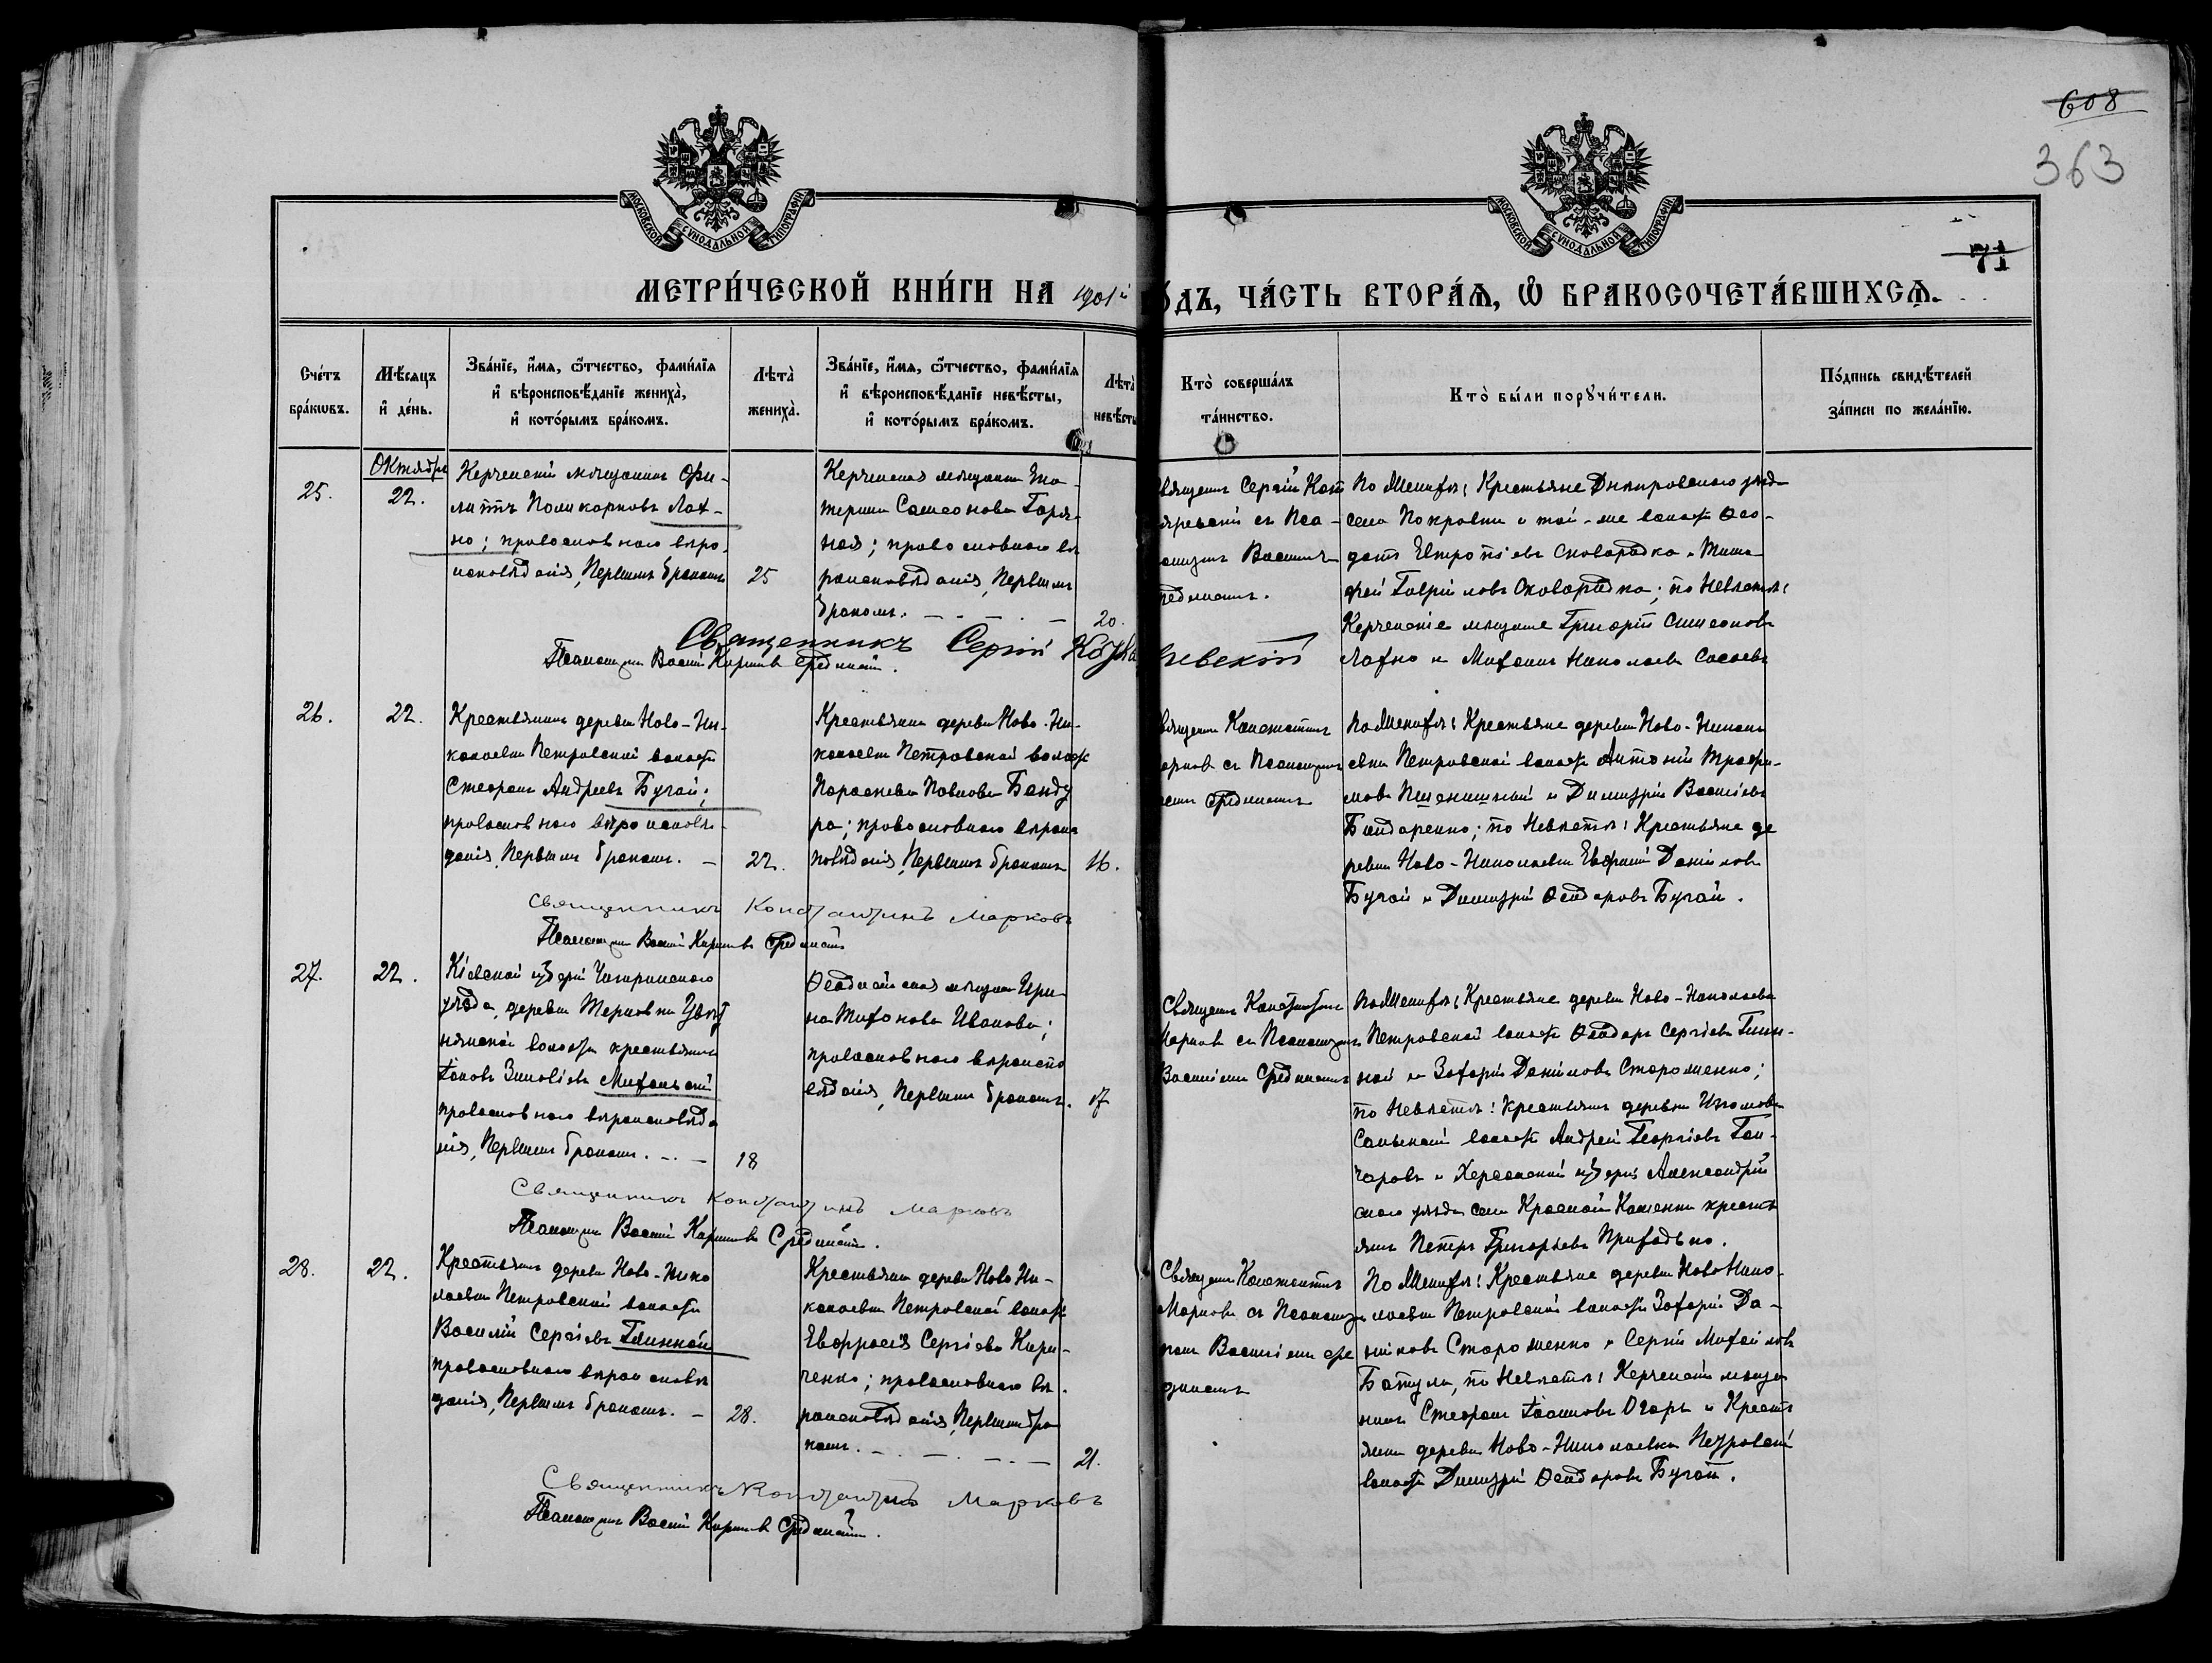 608
363
71
МОСКОВСКОЙ СѴНОДАЛЬНОЙ ТИПОГРАФІИ
МОСКОВСКОЙ СѴНОДАЛЬНОЙ ТИПОГРАФІИ
МЕТРИ́ЧЕСКОЙ КНИ́ГИ НА 1901й
О́ДЪ, ЧА́СТЬ ВТОРА́Ѧ, Ѡ҆ БРАКОСОЧЕТА́ВШИХСѦ.
Сче́тъ бра́кѡвъ.
Мѣ́сяцъ и҆ де́нь.
Зва́нїе, и҆́мя, ѻ҆́тчество, фами́лїя и҆ вѣроисповѣ́данїе жениха̀, и҆ кото́рымъ бра́комъ.
Лѣта̀ жениха̀.
Зва́нїе, и҆́мя, ѻ҆́тчество, фами́лїя и҆ вѣроисповѣ́данїе невѣ́сты, и҆ кото́рымъ бра́комъ.
Лѣта̀ невѣ́сты
Кто̀ соверша́лъ та́инство.
Кто̀ бы́ли порꙋчи́тели.
По́дпись свидѣ́телей за́писи по жела́нїю.
Октября
25.
22.
Керченскій мѣщанинъ Фи-
липпъ Поликарповъ Лах-
но; православнаго вѣро-
исповѣданія, первымъ бракомъ
25
Керченская мѣщанка Ека-
терина Самсонова Горя-
ная; православнаго вѣ
роисповѣданія, первымъ
бракомъ. — . — . —
20.
Сергій
съ Пса-
Василіемъ
По Женихѣ: Крестьяне Днѣпровскаго уѣзда
села Покровки и той-же волости Ѳео-
дотъ Евтропіевъ Сковородка и Тимо-
фей Гавріиловъ Сковородка; по Невѣстѣ:
Керченскіе мѣщане Григорій Симеоновъ
Лахно и Михаилъ Николаевъ
Священникъ Сергій
Псаломщикъ Василій
26.
22.
Крестьянинъ деревни Ново-Ни-
колаевки Петровской волости
Стефанъ Андреевъ Бугай;
православнаго вѣроисповѣ-
данія, первымъ бракомъ. —
22.
Крестьянка деревни Ново-Ни-
колаевки Петровской волости
Параскева Павлова Банду
ра; православнаго вѣроис
повѣданія, первымъ бракомъ
16.
Константинъ
съ Псаломщикомъ
По Женихѣ: Крестьяне деревни Ново-Никола
евки Петровской волости Антоній Трофи-
мовъ Пшеничный и Димитрій Васильевъ
Бондаренко; по Невѣстѣ: Крестьяне де
ревни Ново-Николаевки Евфимій Даніиловъ
Бугай и Димитрій Ѳеодоровъ Бугай.
Священникъ Константинъ Марковъ
Псаломщикъ Василій
27.
22.
Кіевской губерніи Чигиринскаго
уѣзда, деревни Терновки
волости крестьянинъ
Іаковъ Зиновіевъ
православнаго вѣроисповѣда
нія, первымъ бракомъ. — . —
18
Ѳеодосійская мѣщанка Ири-
на Тихонова Иванова;
православнаго вѣроиспо
вѣданія, первымъ бракомъ.
17
Священникъ Константинъ
Марковъ съ Псаломщикомъ
Василіемъ
По Женихѣ: Крестьяне деревни Ново-Николаевки
Петровской волости Ѳеодоръ Сергіевъ Глин-
ной и Захарій Даніиловъ Стороженко;
по Невѣстѣ: Крестьянинъ деревни
волости Андрей Георгіевъ Гон-
чаровъ и Херсонской губерніи Александрій
скаго уѣзда села Красной Каменки кресть
янинъ Петръ Григорьевъ Приходько.
Священникъ Константинъ Марковъ
Псаломщикъ Василій
28.
22.
Крестьянинъ деревни Ново-Нико
лаевки Петровской волости
Василій Сергіевъ Глинной
православнаго вѣроисповѣ
данія, первымъ бракомъ. —
28.
Крестьянка деревни Ново Ни-
колаевки Петровской волости
Евфросія Сергіева Кири-
ченко; православнаго вѣ-
роисповѣданія, первымъ бра
комъ. — . — . — . —
21.
Священникъ Константинъ
Марковъ съ Псаломщи
комъ Василіемъ
По Женихѣ: Крестьяне деревни Ново Нико-
лаевки Петровской волости Захарій Да-
ніиловъ Стороженко и Сергій Михайловъ
по Невѣстѣ: Керченскій мѣща
нинъ Стефанъ Іоанновъ Огарь и Кресть
янинъ деревни Ново-Николаевки Петровской
волости Димитрій Ѳеодоровъ Бугай.
Священникъ Константинъ Марковъ
Псаломщикъ Василій